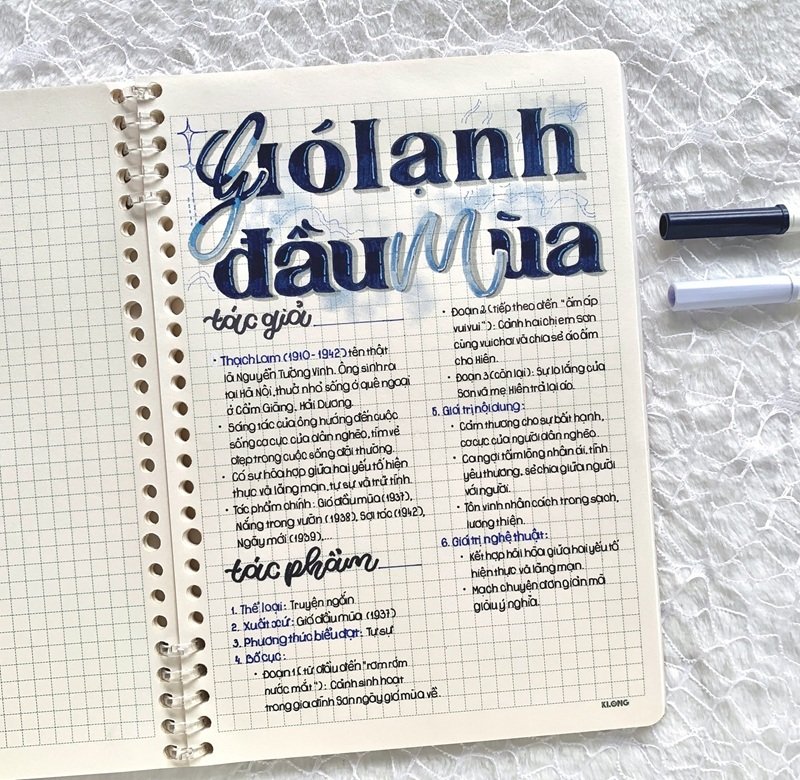 Gió lạnh
đầu Mùa
tác giả
• Thạch Lam (1910 - 1942) tên thật
là Nguyễn Tường Vinh. Ông sinh ra
tại Hà Nội, thuở nhỏ sống ở quê ngoại
ở Cẩm Giàng, Hải Dương.
• Sáng tác của ông hướng đến cuộc
sống cơ cực của dân nghèo, tìm về
đẹp trong cuộc sống đời thường.
• Có sự hòa hợp giữa hai yếu tố hiện
thực và lãng mạn, tự sự và trữ tình.
• Tác phẩm chính: Gió đầu mùa (1937),
Nắng trong vườn (1938), Sợi tóc (1942),
Ngày mới (1939),...
tác phẩm
1. Thể loại: Truyện ngắn
2. Xuất xứ: Gió đầu mùa (1937)
3. Phương thức biểu đạt: Tự sự
4. Bố cục:
• Đoạn 1 (từ đầu đến "rơm rớm
nước mắt"): Cảnh sinh hoạt
trong gia đình Sơn ngày gió mùa về.
• Đoạn 2 (tiếp theo đến "ấm áp
vui vui"): Cảnh hai chị em Sơn
cùng vui chơi và chia sẻ áo ấm
cho Hiên.
• Đoạn 3 (còn lại): Sự lo lắng của
Sơn và mẹ Hiên trả lại áo.
5. Giá trị nội dung:
• Cảm thương cho sự bất hạnh,
cơ cực của người dân nghèo.
• Ca ngợi tấm lòng nhân ái, tình
yêu thương, sẻ chia giữa người
với người.
• Tôn vinh nhân cách trong sạch,
lương thiện.
6. Giá trị nghệ thuật:
• Kết hợp hài hòa giữa hai yếu tố
hiện thực và lãng mạn.
• Mạch chuyện đơn giản mà
giàu ý nghĩa.
KLONG